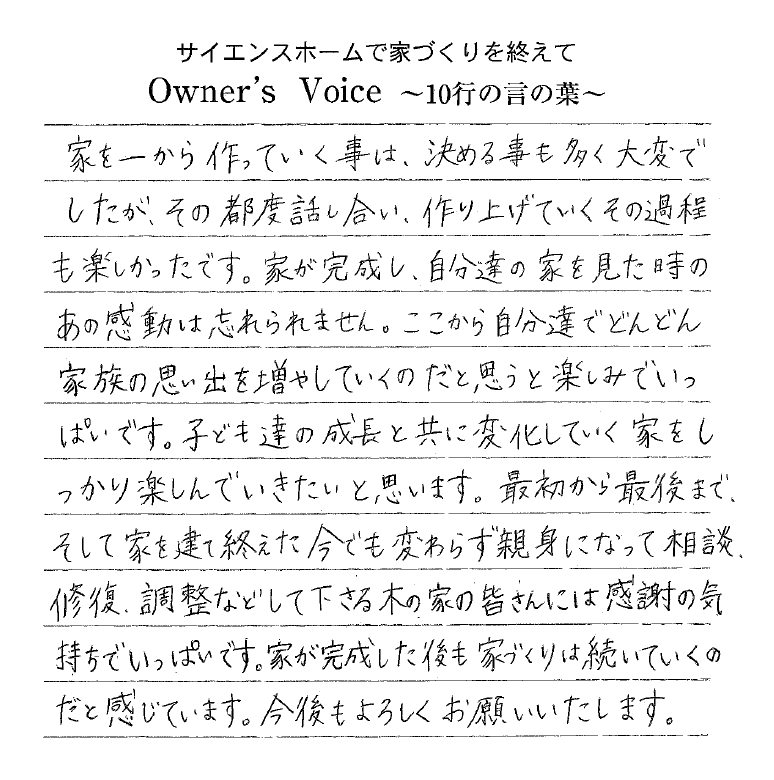 サイエンスホームで家づくりを終えて
Owner's Voice ～10行の言の葉～
家を一から作っていく事は、決める事も多く大変で
したが、その都度話し合い、作り上げていくその過程
も楽しかったです。家が完成し、自分達の家を見た時の
あの感動は忘れられません。ここから自分達でどんどん
家族の思い出を増やしていくのだと思うと楽しみでいっ
ぱいです。子ども達の成長と共に変化していく家をし
っかり楽しんでいきたいと思います。最初から最後まで、
そして家を建て終えた今でも変わらず親身になって相談、
修復、調整などして下さる木の家の皆さんには感謝の気
持ちでいっぱいです。家が完成した後も家づくりは続いていくの
だと感じています。今後もよろしくお願いいたします。